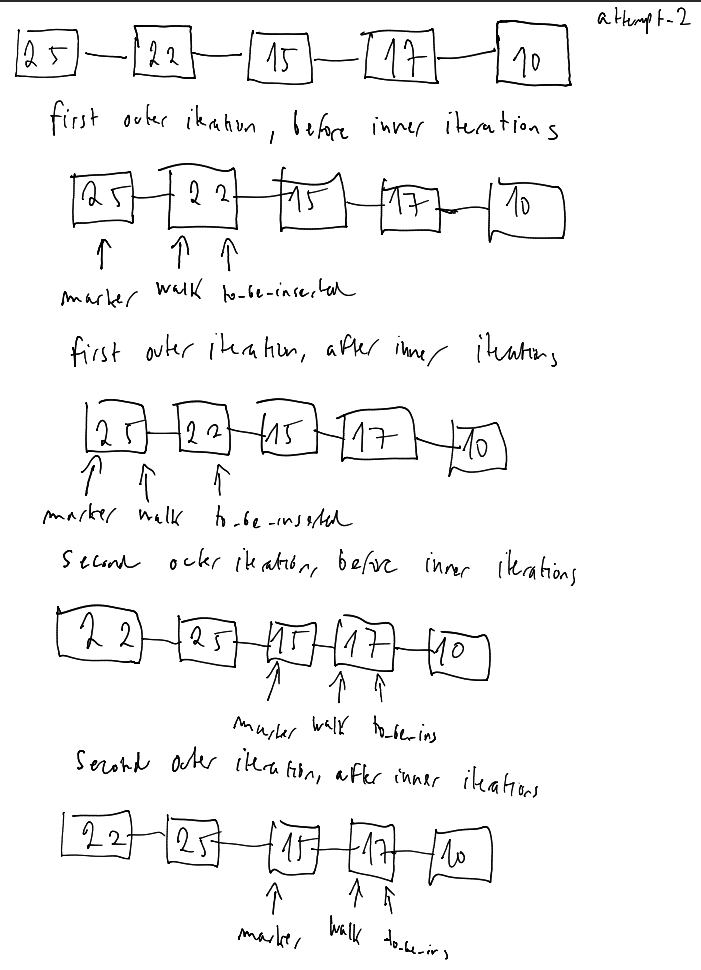 attempt-2
25 22 15 17 10
first outer iteration, before inner iterations
25 22 15 17 10
marker walk to-be-inserted
first outer iteration, after inner iterations
25 22 15 17 10
marker walk to-be-inserted
second outer iteration, before inner iterations
22 25 15 17 10
marker walk to-be-ins
second outer iteration, after inner iterations
22 25 15 17 10
marker walk to-be-ins